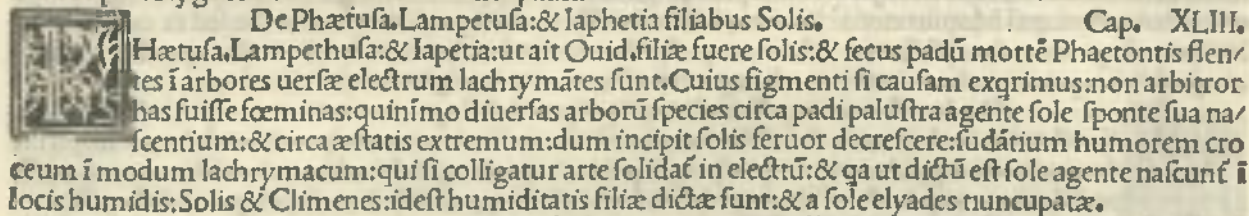 De Phætuſa.Lampetuſa:& Iaphetia filiabus Solis. Cap. XLIII.
HÆtuſa.Lampethuſa:& Iapetia:ut ait Ouid.filiæ fuere ſolis:& ſecus padū mortē Phaetontis flen/
tes ī arbores uerſæ electrum lachrymātes ſunt.Cuius figmenti ſi cauſam exqrimus:non arbitror
has fuiſſe fœminas:quinīmo diuerſas arborū ſpecies circa padi paluſtra agente ſole ſponte ſua na/
ſcentium:& circa æſtatis extremum:dum incipit ſolis feruor decreſcere:ſudātium humorem cro
ceum ī modum lachrymacum:qui ſi colligatur arte ſolidat̄ in electrū:& qa ut dictū eſt ſole agente naſcunt̄ ī
locis humidis:Solis & Climenes:ideſt humiditatis filiæ dictæ ſunt:& a ſole elyades nuncupatæ.